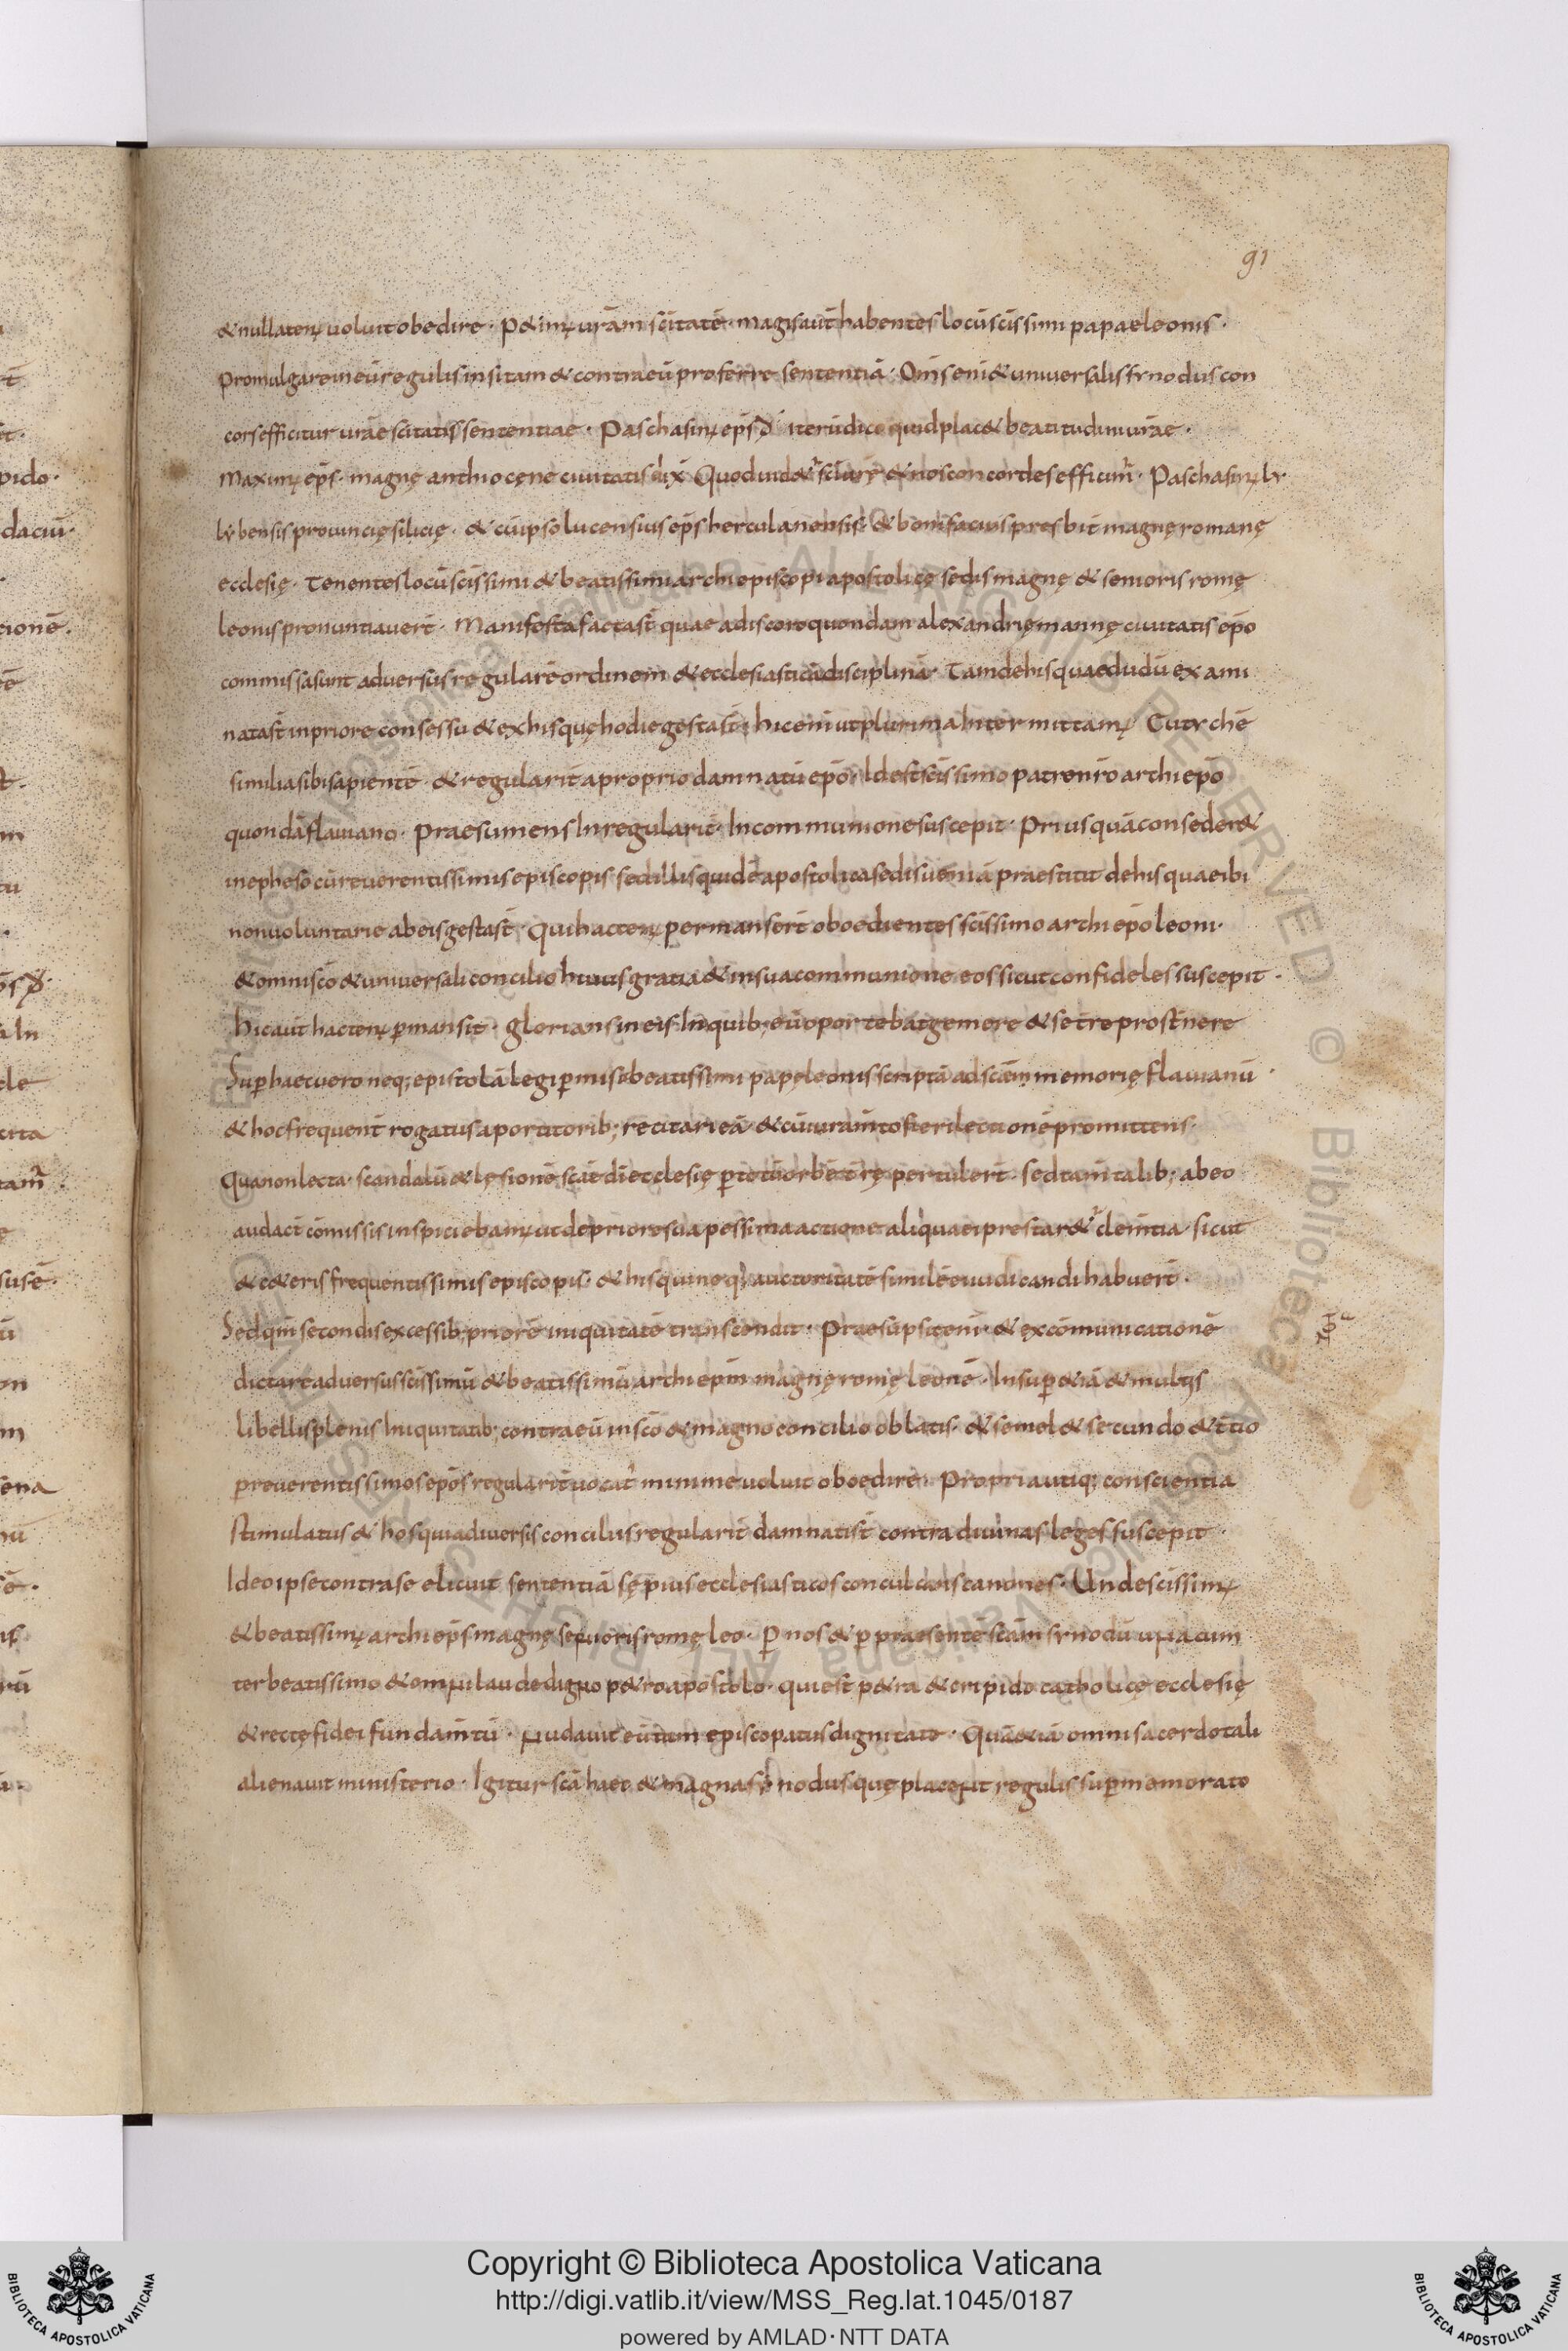 91
& nullaten⹁ uoluit obedire · P&im⹁ urām sc̄itatē · magis aut̄ habentes locū sc̄issimi papae leonis ·
promulgare in eū regulis insitam & contra eū proferre sententiā · Om̄s eni & uniuersalis synodus con
cors efficitur urāe sc̄itatis sententiae · Paschasin⹁ ep̄s d̄ iterū dico quid plac& beatitudini urāe ·
Maxim⹁ ep̄s · magnę anthiocęne ciuitatis dix̄ Quod uid&r̄ & nos concordes efficim̄ · Paschasin⹁ ly
lybensis prouincię silicię · & cū ipso lucensius ep̄s herculanensis · & bonifacius presbit̄ magnę romanę
ecclesię · Tenentes locū sc̄issimi & beatissimi archiepiscopi apostolicę sedis magnę & senioris romę
leonis pronuntiauer̄t · Manifesta facta st̄ quae a discoro quondam alexandrię mannę ciuitatis ep̄o
commissa sunt aduersus regularē ordinem & ecclesiasticā disciplinā · Tam de his quae dudū exami
nata st̄ in priore consessu & ex his quę hodie gesta st̄ · hic eni ut plurima Intermittam⹁ Eutychē
similia sibi sapientē · & regularit̄ a proprio damnatū ep̄o · Id est sc̄issimo patre nr̄o archiep̄o
quondā flauiano · praesumens Inregularit̄ · In communione suscepit · Prius quā conseder&
in epheso cū reuerentissimis episcopis · sed illis quidē apostolica sedis ueniā praestitit de his quae ibi
non uoluntarie ab eis gesta st̄ · Qui hacten⹁ permanser̄t oboedientes sc̄issimo archiep̄o leoni ·
& omni sc̄o & uniuersali concilio huius gratia & in sua communione eos sicut confideles suscepit ·
hic aut̄ hacten⹁ p̄mansit · glorians in eis In quib; eū oportebat gemere & se tre prost̄nere
Sup̄ haec uero neq; epistolā legi p̄misit beatissimi papę leonis scriptā ad sc̄ēm memorię flauianū ·
& hoc frequent̄ rogatus a portitorib; recitari eā · & cū iuram̄to fieri lectionē promittens ·
Qua non lecta · scandalū & lęsionē sc̄ae d̄i ecclesię p̄ totū orbē t̄rę pertuler̄t · sed tam̄ talib; ab eo
audact̄ com̄issis inspiciebam⹁ ut de priore sua pessima actione aliqua ei prestar&r̄ clem̄tia sicut
& c&eris frequentissimis episcopis · & his qui neq; auctoritatē similē ei iudicandi habuer̄t ·
Sed qm̄ secondis excessib; priorē iniquitatē transcendit · Praesūpsit eni · & excōmunicationē
dictare aduersus sc̄issimū & beatissimū archiep̄m magnę romę leonē · Insup̄ &iā & multis
libellis plenis Iniquitatib; contra eū in sc̄o & magno concilio oblatis · & semel & secundo & t̄tio
p̄ reuerentissimos ep̄os regularit̄ uocat̄ minime uoluit oboedire · Propria utiq; conscientia
stimulatus & hos qui a diuersis conciliis regularit̄ damnati st̄ contra diuinas leges suscepit ·
Ideo ipse contra se elicuit sententiā sępius ecclesiasticos conculcans canones · Unde sc̄issim⹁
& beatissim⹁ archiep̄s magnę senioris romę leo · P̄ nos & p̄ praesentē sc̄am synodū una cum
ter beatissimo & omni laude digno p&ro apostolo · qui est p&ra & cripido catholicę ecclesię
& rectę fidei fundam̄tū · Nudauit eū tam episcopatus dignitate · Quā &iā omni sacerdotali
alienauit ministerio · Igitur sc̄a haec & magna synodus quę placent regulis sup̄ memorato
Copyright © Biblioteca Apostolica Vaticana
http://digi.vatlib.it/view/MSS_Reg.lat.1045/0187
powered by AMLAD·NTT DATA
BIBLIOTECA APOSTOLICA VATICANA
BIBLIOTECA APOSTOLICA VATICANA